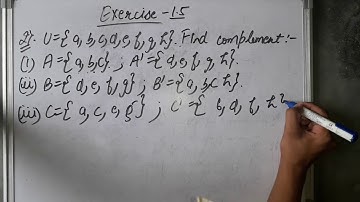 Exercise-1.5
2). U={a, b, c, d, e, f, g, h}. Find complement:-
(i) A={a, b, c} ; A'={d, e, f, g, h}.
(ii) B={d, e, f, g} ; B'={a, b, c h}.
(iii) C={a, c, e, g} ; C'={b, d, f, h}